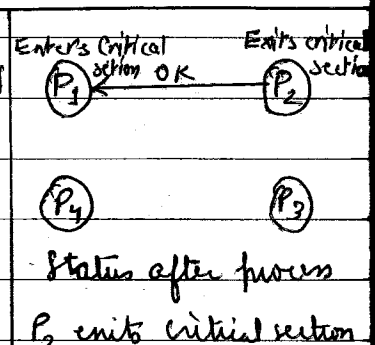 Enters Critical
section OK
Exits critical
section
P1
P2
P4
P3
Status after process
P2 exits critical section